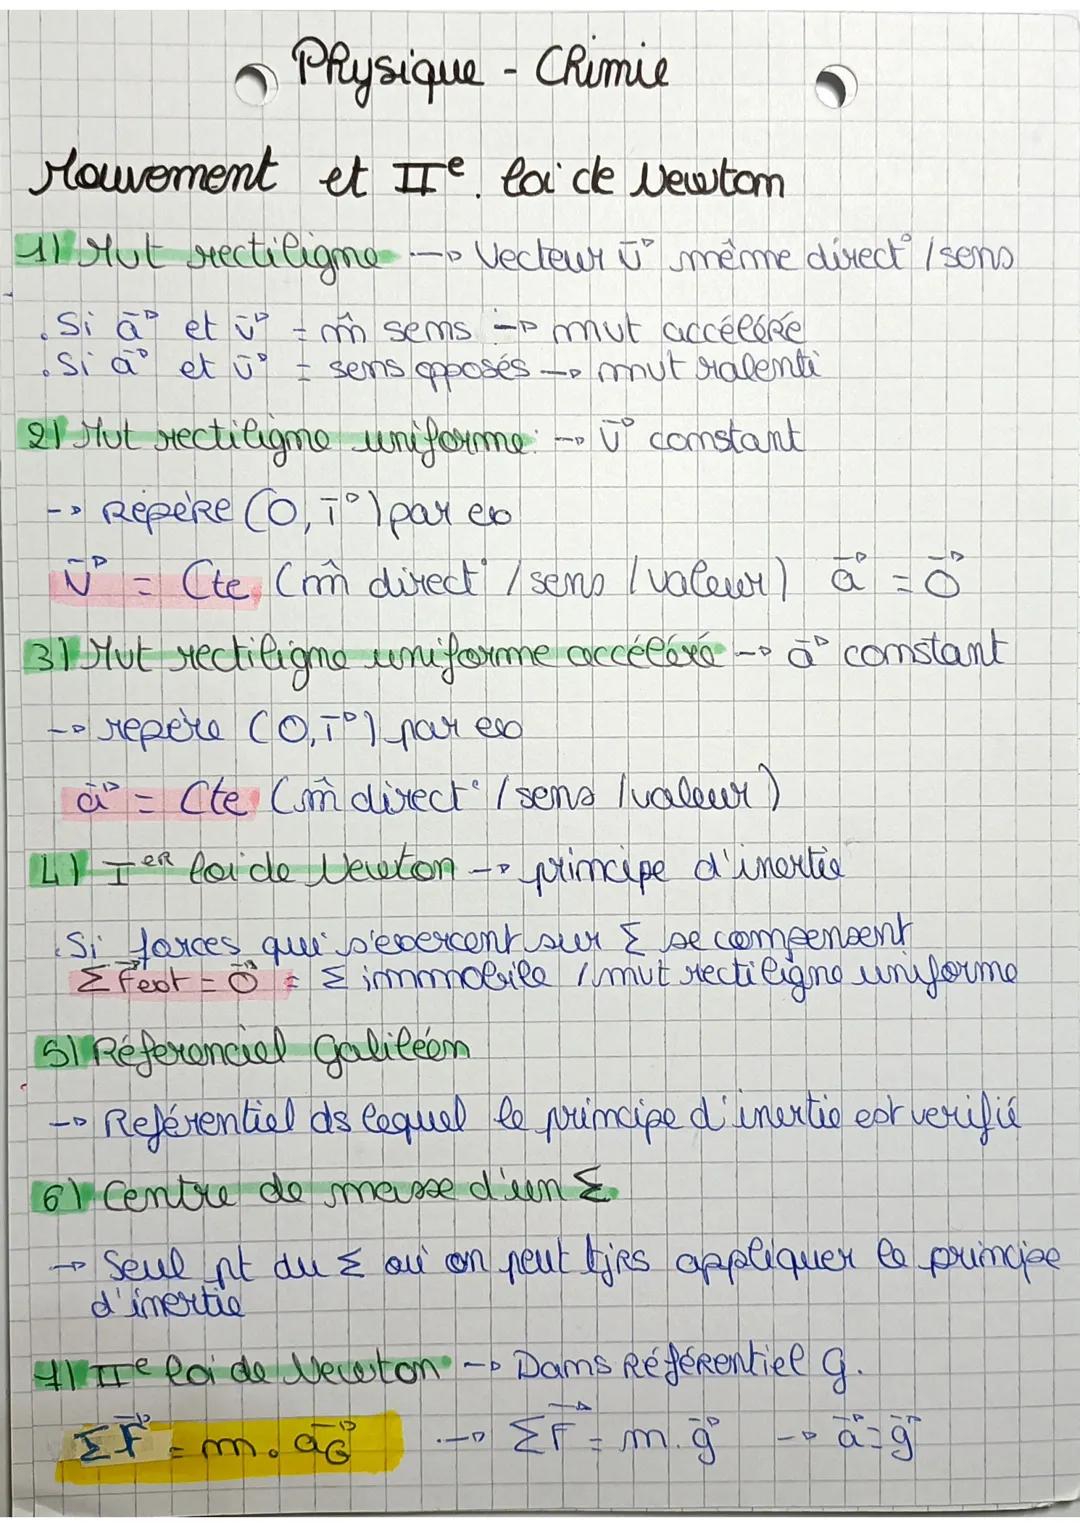 Physique - Chimie
Mouvement et IIe. loi de Newton
1) Mvt rectiligne → Vecteur v⃗ même direct° / sens
. Si a⃗ et v⃗ = m̂ sens → mvt accéléré
. Si a⃗ et v⃗ = sens opposés → mvt ralenti
2) Mvt rectiligne uniforme: → v⃗ constant
→ Repère (O, i⃗) par ex
v⃗ = Cte (m̂ direct° / sens / valeur) a⃗ = 0⃗
3) Mvt rectiligne uniforme accéléré → a⃗ constant
→ repère (O, i⃗) par ex
a⃗ = Cte (m̂ direct° / sens / valeur)
4) Ier loi de Newton → principe d'inertie
. Si forces qui s'exercent sur Σ se compensent
ΣF⃗ext = 0⃗ = Σ immobile / mvt rectiligne uniforme
5) Référenciel Galiléen
→ Reférentiel ds lequel le principe d'inertie est verifié
6) Centre de masse d'un Σ.
→ Seul pt du Σ où on peut tjrs appliquer le principe
d'inertie
7) IIe loi de Newton → Dans Référentiel g.
ΣF⃗ = m. a⃗G .→ ΣF⃗ = m. g⃗ → a⃗ = g⃗